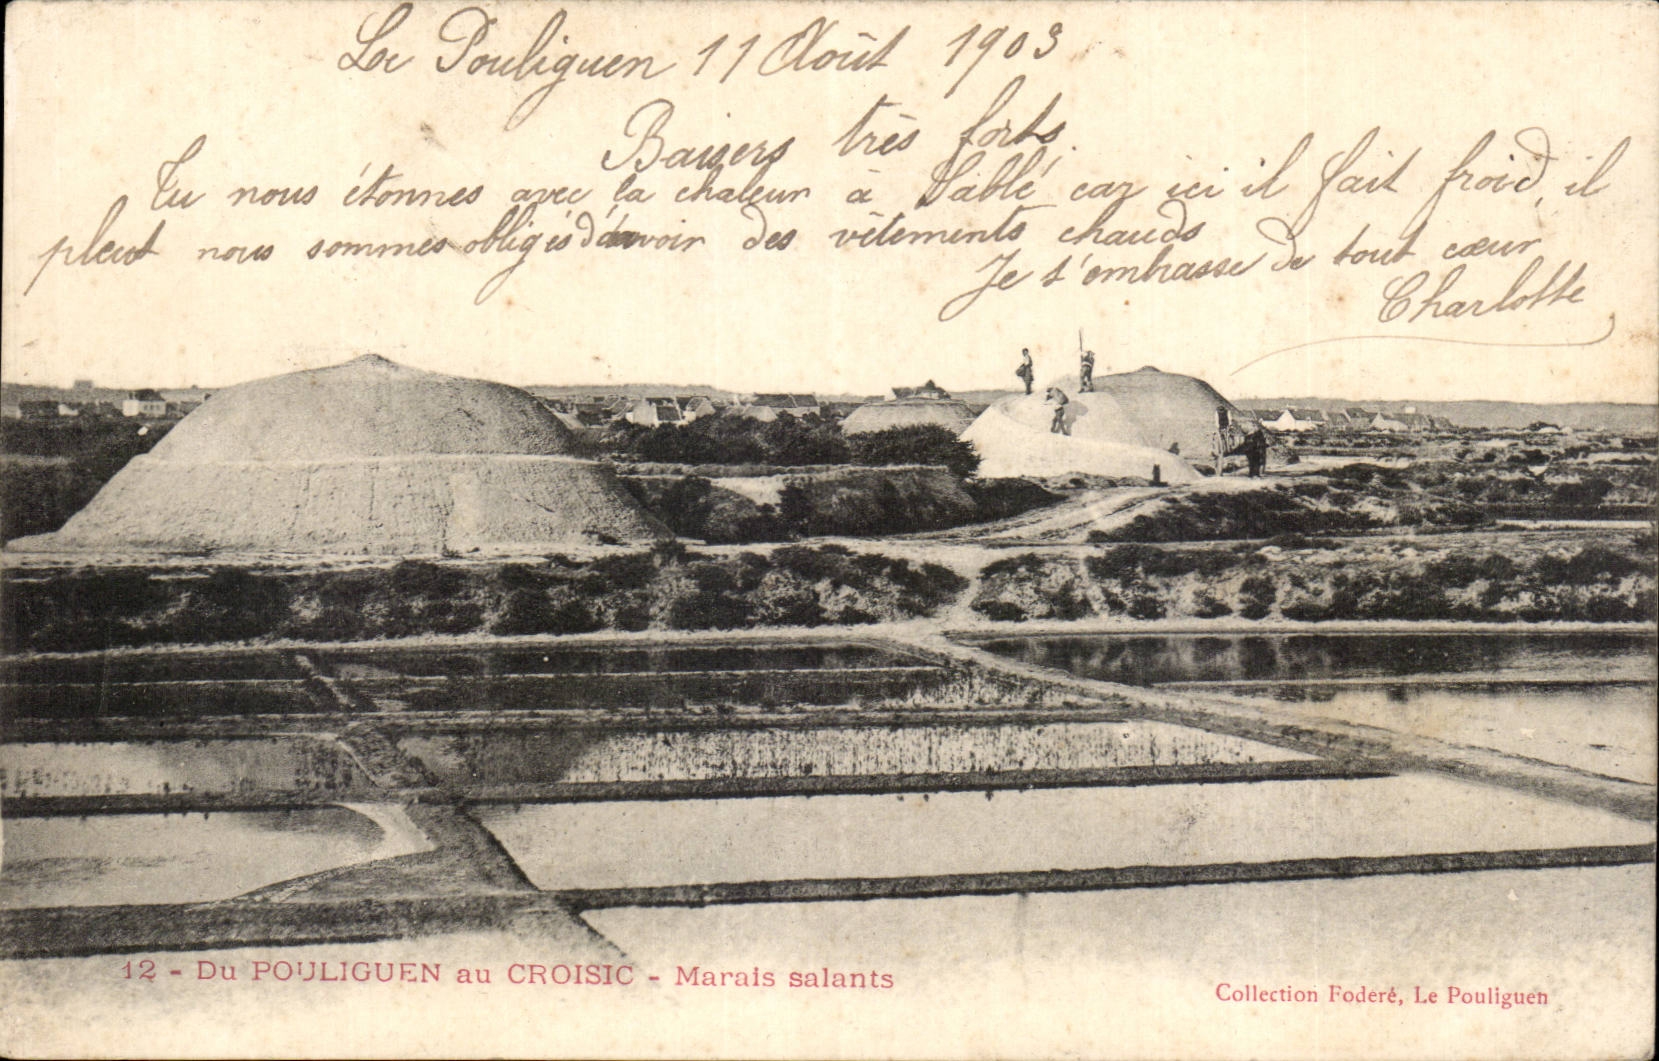 Le Pouliguen 11 Août 1903
Baisers très forts.
Tu nous étonnes avec la chaleur à Sablé car ici il fait froid, il
pleut nous sommes obligés d'avoir des vêtements chauds
Je t'embrasse de tout cœur
Charlotte
12 - Du POULIGUEN au CROISIC - Marais salants
Collection Foderé, Le Pouliguen